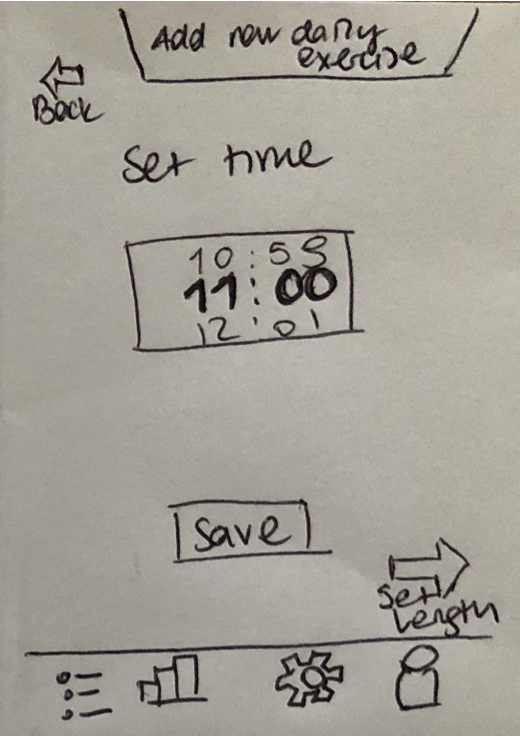 Add new daily
exercise
Back
Set time
10:59
11:00
12:01
Save
Set
Length